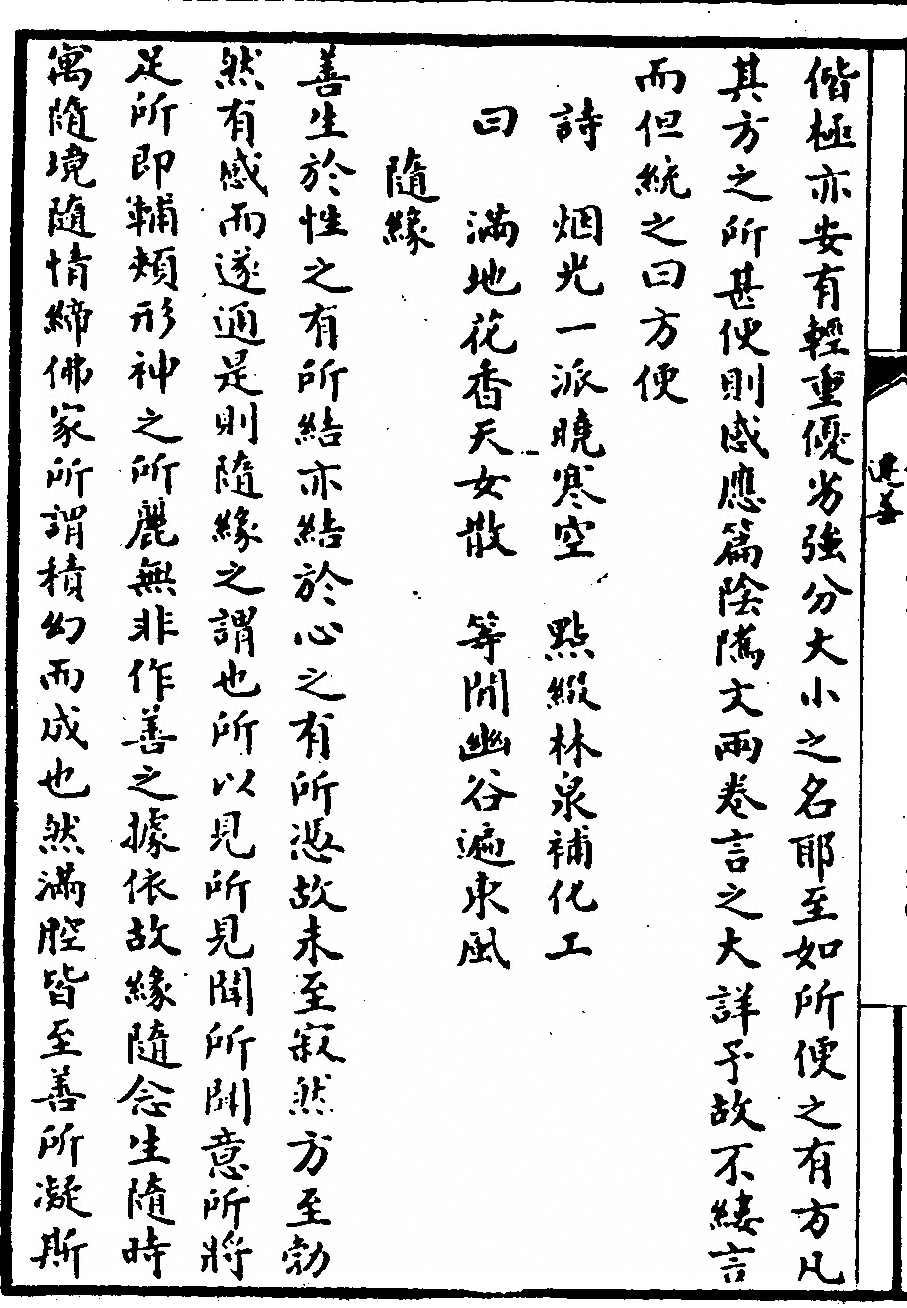 偕極亦安有輕重優劣強分大小之名耶至如所便之有方凡
其方之所甚便則感應篇陰隲文兩卷言之大詳予故不縷言
而但統之曰方便
詩　烟光一派曉寒空　點綴林泉補化工
曰　滿地花香天女散　等閒幽谷遍東風
隨緣
善生於性之有所結亦結於心之有所憑故未至寂然方至勃
然有感而遂通是則隨緣之謂也所以見所見聞所聞意所將
足所即輔頰形神之所麗無非作善之據依故緣隨念生隨時
寓隨境隨情締佛家所謂積幻而成也然滿腔皆至善所凝斯
善